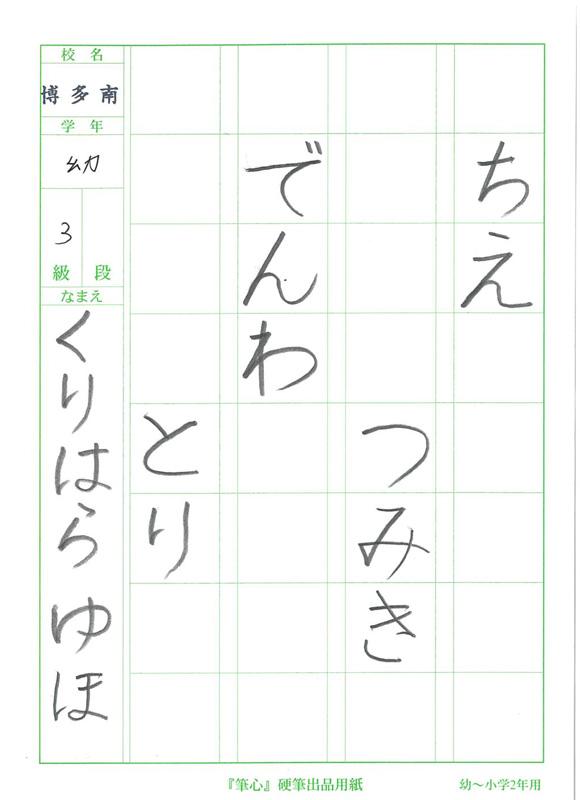 ちえ
つみき
でんわ
とり
校名
博多南
学年
幼
3
級 段
なまえ
くりはら ゆほ
『筆心』硬筆出品用紙
幼〜小学2年用